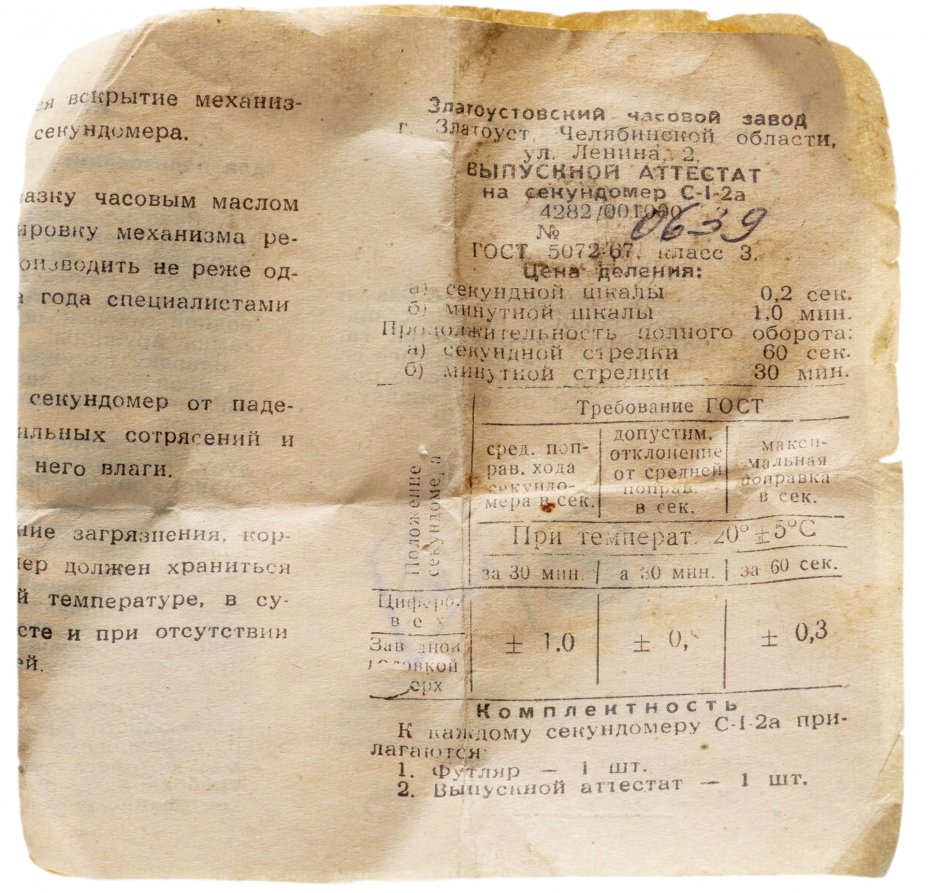 вскрытие механиз-
секундомера.
часовым маслом
механизма ре-
не реже од-
года специалистами
секундомер от паде-
сотрясений и
него влаги.
загрязнения, кор-
должен храниться
температуре, в су-
и при отсутствии
Златоустовский часовой завод
г. Златоуст, Челябинской области,
ул. Ленина, 2.
ВЫПУСКНОЙ АТТЕСТАТ
на секундомер С-1-2а
4282/001990
№ 0639
ГОСТ 5072-67. класс 3.
Цена деления:
а) секундной шкалы 0,2 сек.
б) минутной шкалы 1,0 мин.
Продолжительность полного оборота:
а) секундной стрелки 60 сек.
б) минутной стрелки 30 мин.
Положение
секундомера
Требование ГОСТ
сред. поп-
рав. хода
секундо-
мера в сек.
допустим.
отклонение
от средней
поправ.
в сек.
макси-
мальная
поправка
в сек.
При температ. 20° ±5°С
за 30 мин. 30 мин. за 60 сек.
Циферб.
Заводной
головкой
± 1.0 ± ± 0,3
Комплектность
К каждому секундомеру С-1-2а при-
лагаются
1. Футляр — 1 шт.
2. Выпускной аттестат — 1 шт.